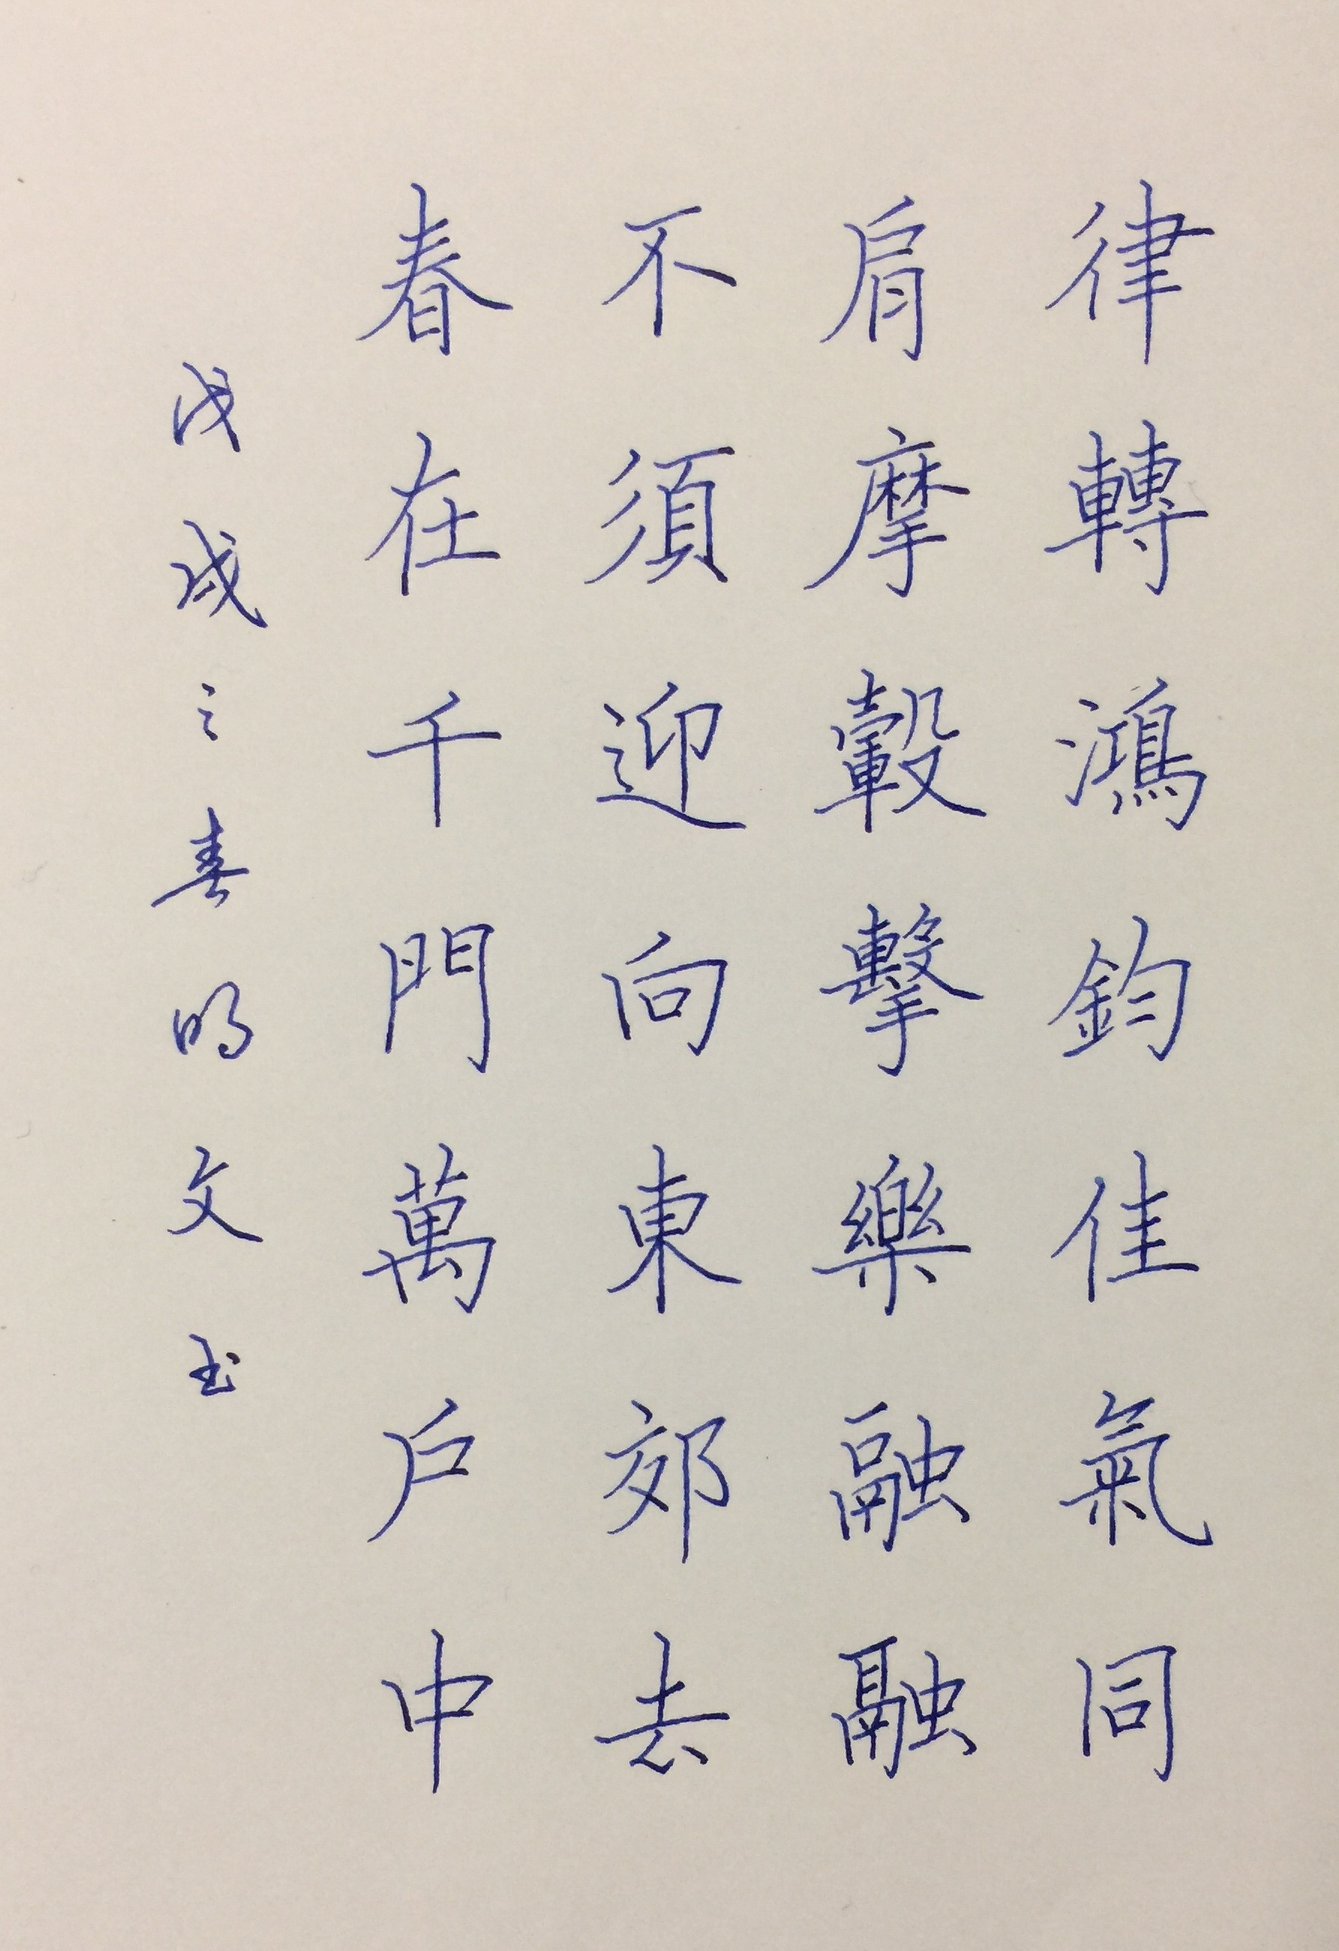 律轉鴻鈞佳氣同
肩摩轂擊樂融融
不須迎向東郊去
春在千門萬戶中
戊戌之春明文书